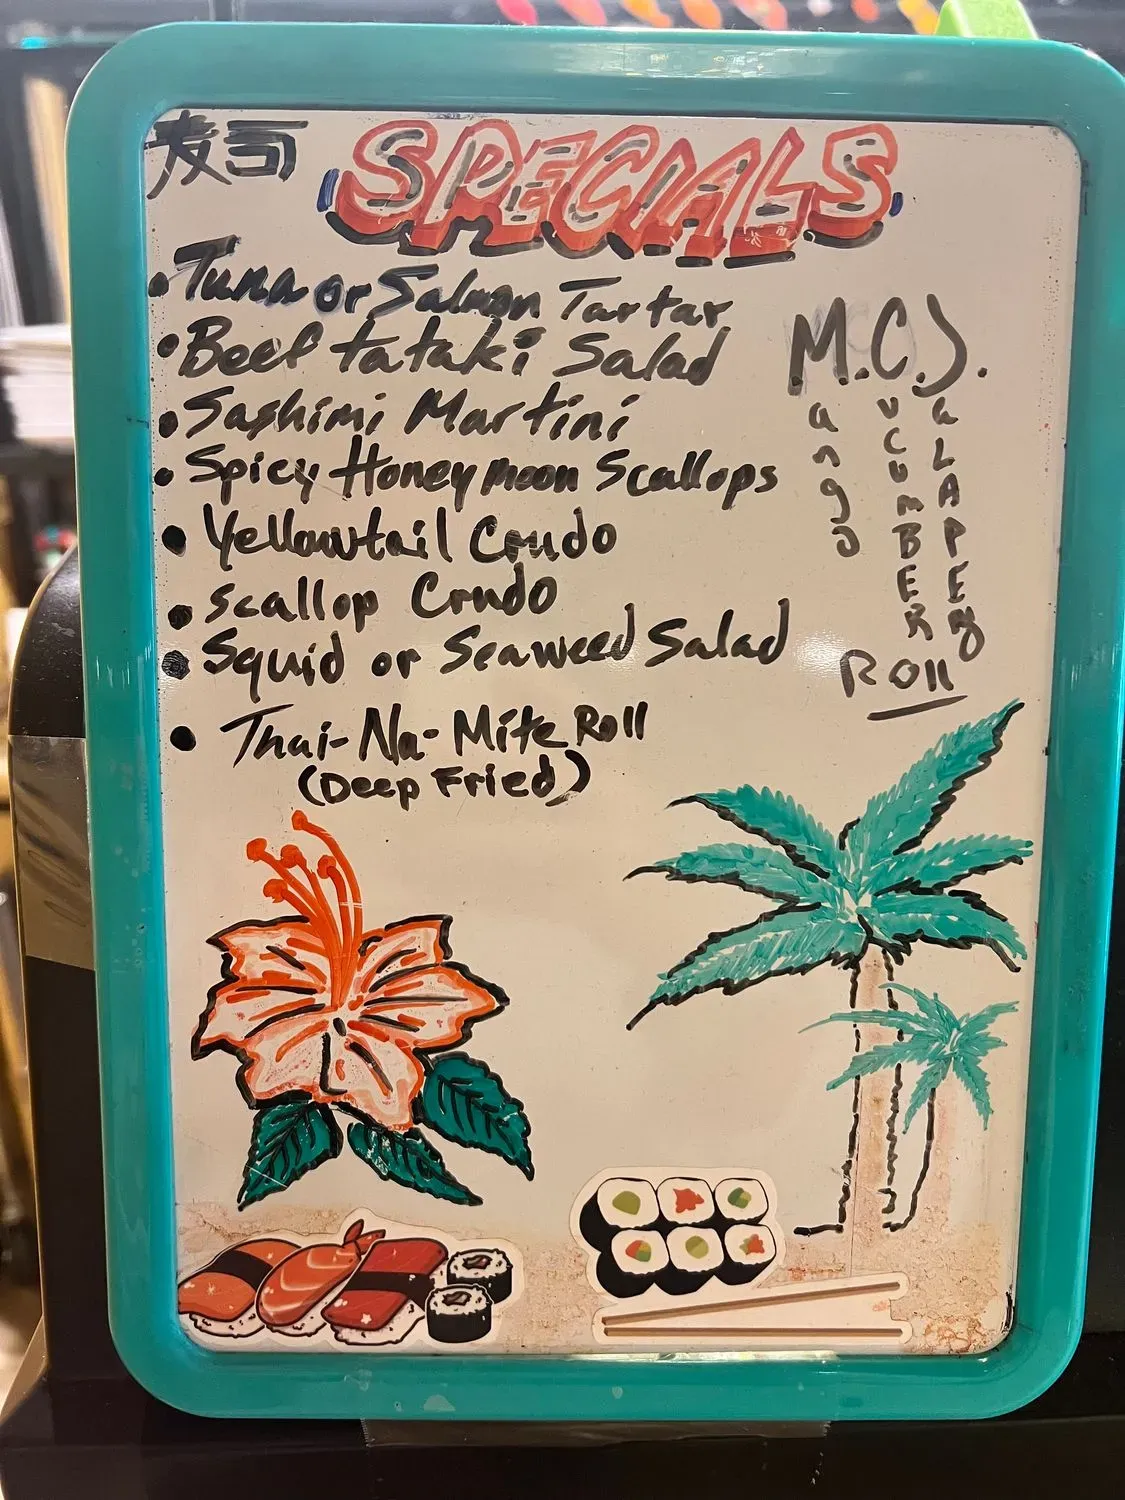 SPECIALS
• Tuna or Salmon Tartar
• Beef tataki Salad
• Sashimi Martini
• Spicy Honeymoon Scallops
• Yellowtail Crudo
• Scallop Crudo
• Squid or Seaweed Salad
• Thai-Na-Mite Roll
(Deep Fried)
M.C.J.
Mango
CucumBER
JaLAPEño
Roll